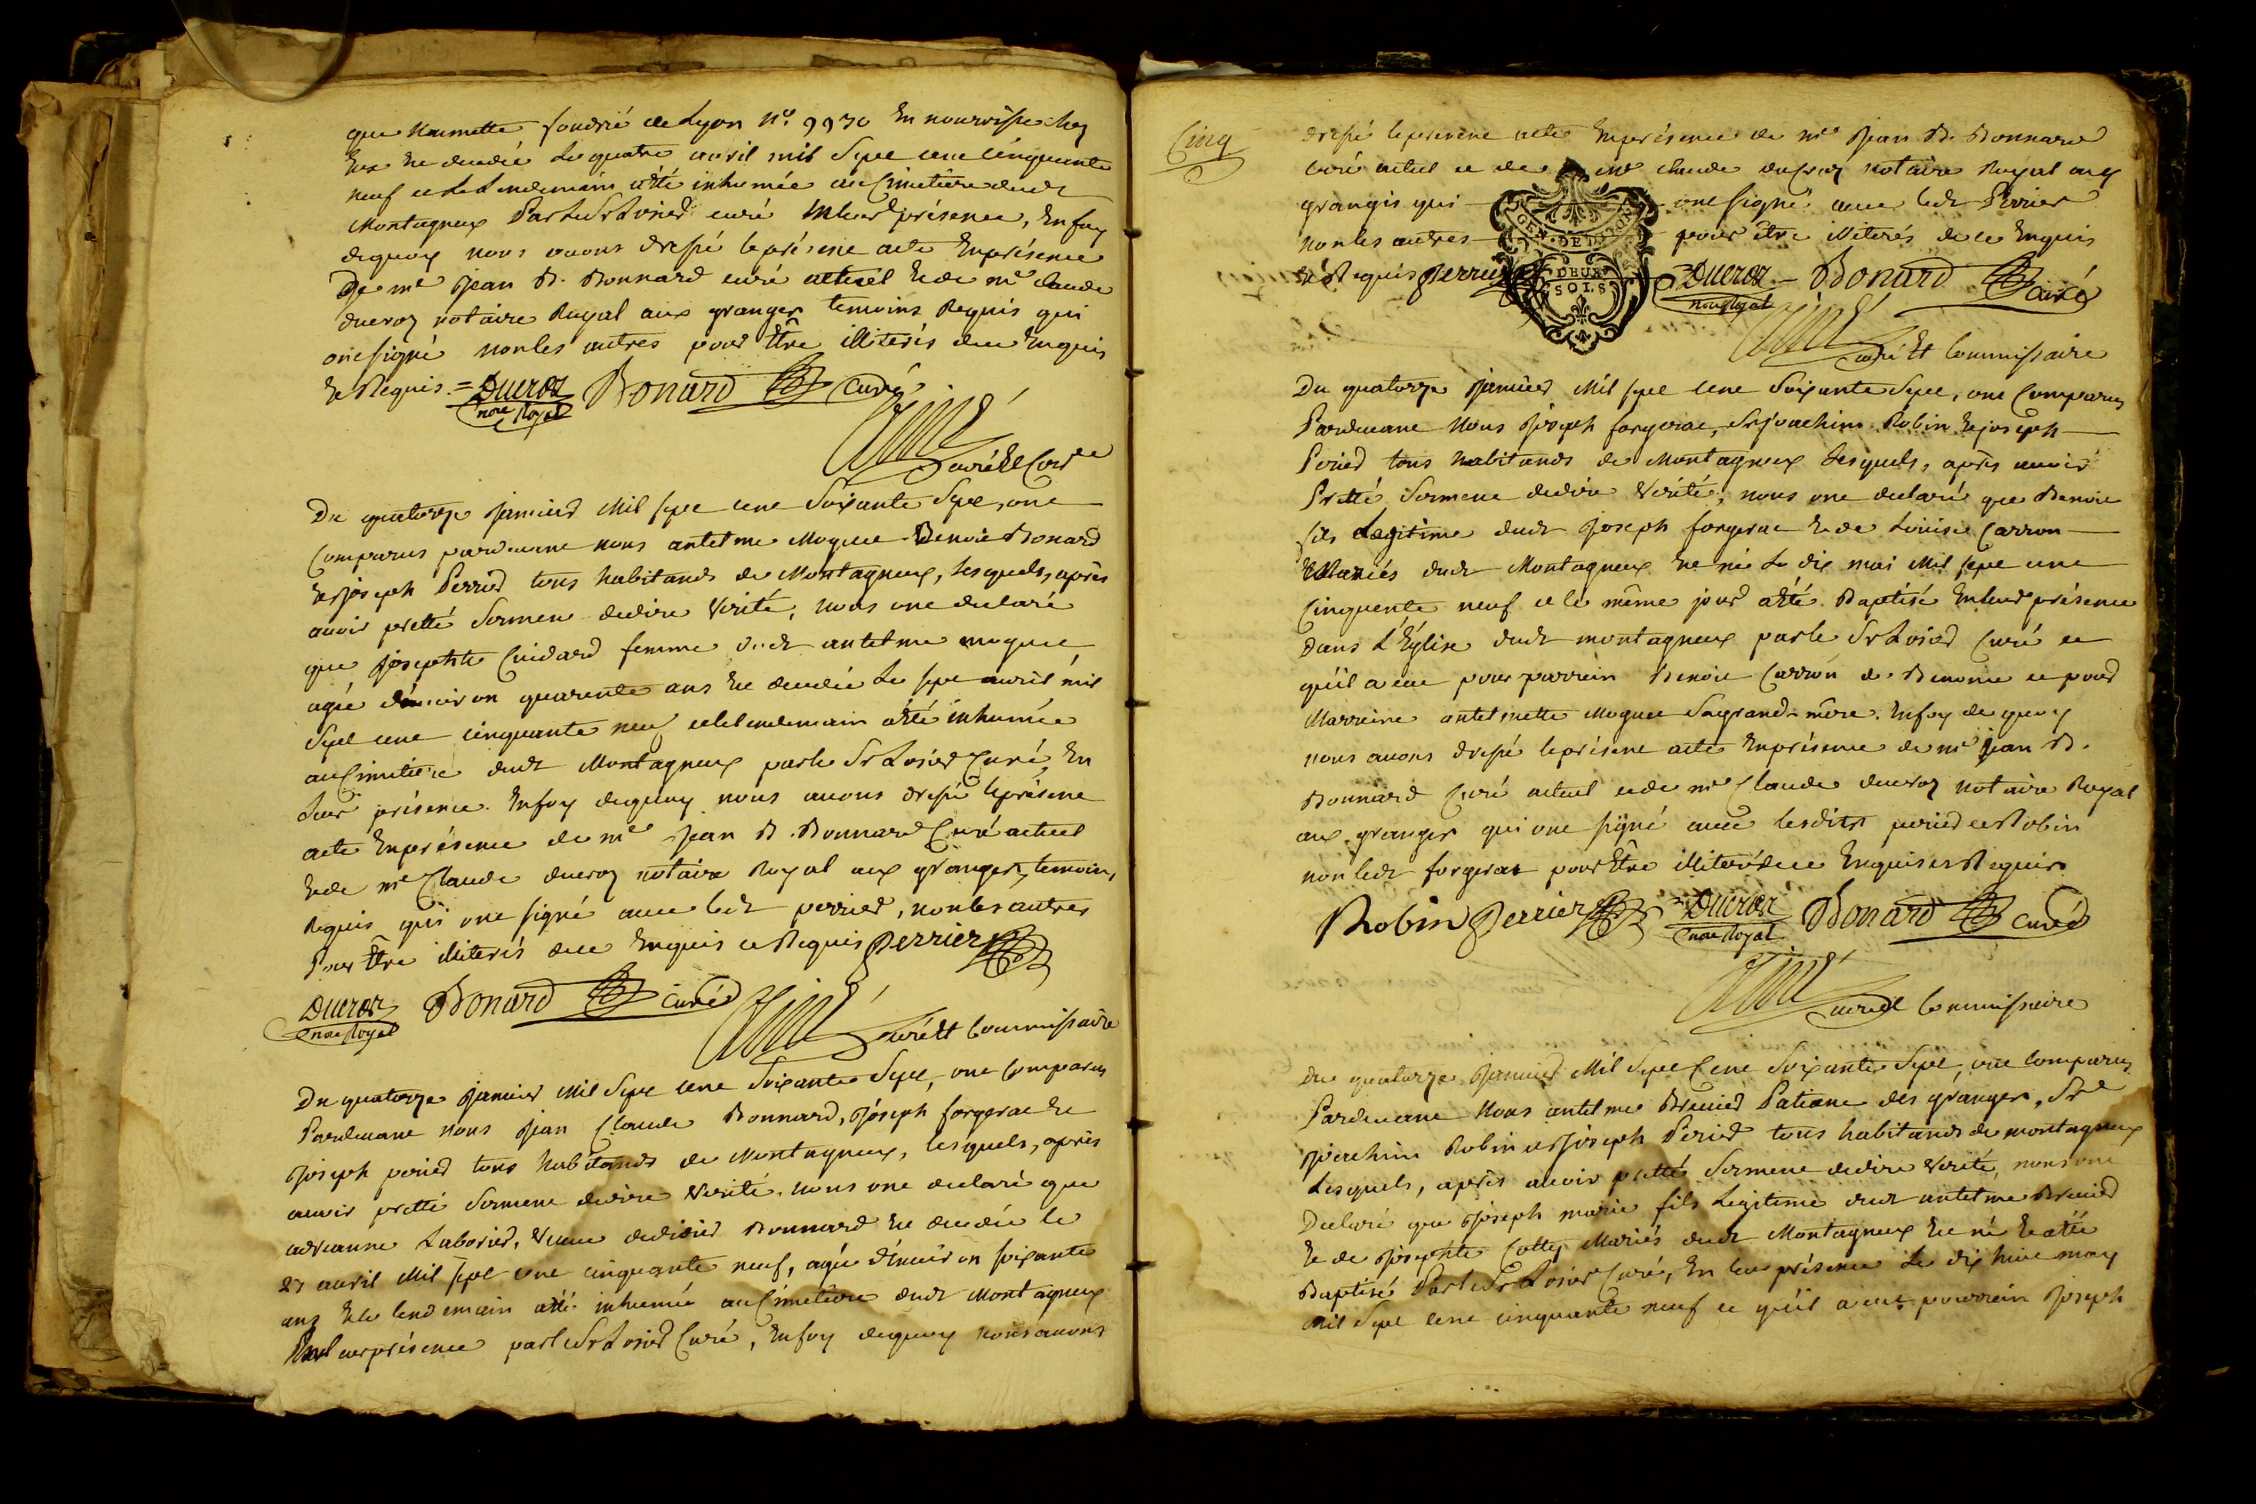 que naimette foudrié de Lyon n.o 9930 en nourrisse chez
Eux Est decedée Le quatre avril mil Sept cent cinquante
neuf et Le Lendemain a Eté inhumée au Cimetière dudt
Montagneux Par Le Sr Losier curé En leur présence, En foy
dequoy nous avons dressé le présent acte En présence
De me Jean B. Bonnard curé actuel Et de me claude
ducroz notaire Royal aux granges temoins Requis qui
ont signé non les autres pour Être illiterés de ce Enquis
Et Requis = Ducroz Bonard curé
nore Royal
curé Et Cosre
Du quatorze Janvier Mil sept cent Soixante Sept, ont
Comparus pardevant nous antelme Moguet Benoit Bonard
Et Joseph Perrier tous habitands de Montagneux, Lesquels, après
avoir pretté Serment de dire Verité, nous ont declaré
que Josephte Cuidard femme dudt antelme moguet
agée d'environ quarente ans Est decedée Le sept avril mil
Sept cent cinquante neuf et le lendemain a Eté inhumée
au Cimetière dudt Montagneux par le Sr Losier Curé, En
Leur présence. En foy dequoy nous avons dressé le présent
acte En présence de me Jean B. Bonnard Curé actuel
Et de me Claude ducroz notaire Royal aux granges, temoins,
Requis qui ont signé avec ledt perrier, non les autres
Pour Être illiterés de ce Enquis et Requis Perrier
Ducroz Bonard curé
nore Royal
curé Et Commissaire
Du quatorze Janvier Mil Sept cent Soixante Sept, ont Comparus
Pardevant nous Jean Claude Bonnard, Joseph forgerat Et
Joseph perier tous habitands de Montagneux, lesquels, après
avoir pretté Serment de dire Verité, nous ont declaré que
adrianne Laborier, Veuve de didier Bonnard Est decedée le
27 avril Mil sept cent cinquante neuf, agée d'environ soixante
ans Et le lendemain a Eté inhumée au Cimetière dudt Montagneux
En leur présence par le Sr Losier Curé, En foy dequoy nous avons
Cinq
dressé le présent acte En présence de me Jean B. Bonnard
curé actuel et de me claude ducroz notaire Royal aux
granges qui ont signé avec ledt Perrier
non les autres pour être illiterés de ce Enquis
et Requis Perrier Ducroz Bonard curé
nore Royal
GEN · DE DIJON
DEUX
SOLS
curé Et Commissaire
Du quatorze Janvier Mil sept cent Soixante Sept, ont Comparus
Pardevant Nous Joseph forgerat, Sr joachim Robin Et joseph
Perier tous habitands de Montagneux Lesquels, après avoir
Pretté Serment de dire Verité, nous ont declaré que Benoit
fils Legitime dudt Joseph forgerat Et de Louise Carron
Mariés dudt Montagneux Est né Le dix mai Mil sept cent
Cinquente neuf et le même jour a Eté Baptisé En leur présence
dans L'Église dudt montagneux par le Sr Losier Curé et
qu'il a eut pour parrein Benoit Carron de et pour
Marreine antelmette Moguet Sa grand-mère. En foy de quoy
nous avons dressé le présent acte En présence de me Jean B.
Bonnard Curé actuel et de me Claude ducroz notaire Royal
aux granges qui ont signé avec lesdits perier et Robin
non ledt forgerat pour Être illiteré de ce Enquis et Requis
Robin Perrier Ducroz Bonard curé
nore Royal
curé Et Commissaire
Du quatorze Janvier Mil Sept Cent Soixante Sept, ont Comparus
Pardevant Nous antelme Brevier Des granges, Sr
Joachim Robin et Joseph Perier tous habitands de montagneux
Lesquels, après avoir pretté Serment de dire Verité, nous ont
Declaré que Joseph marie fils Legitime dudt antelme Brevier
Et de Josephte Collez Mariés dudt Montagneux Est né Et a Eté
Baptisé Par le Sr Losier Curé, En leur présence Le dix huit may
Mil Sept cent cinquante neuf et qu'il a eut parrein Joseph